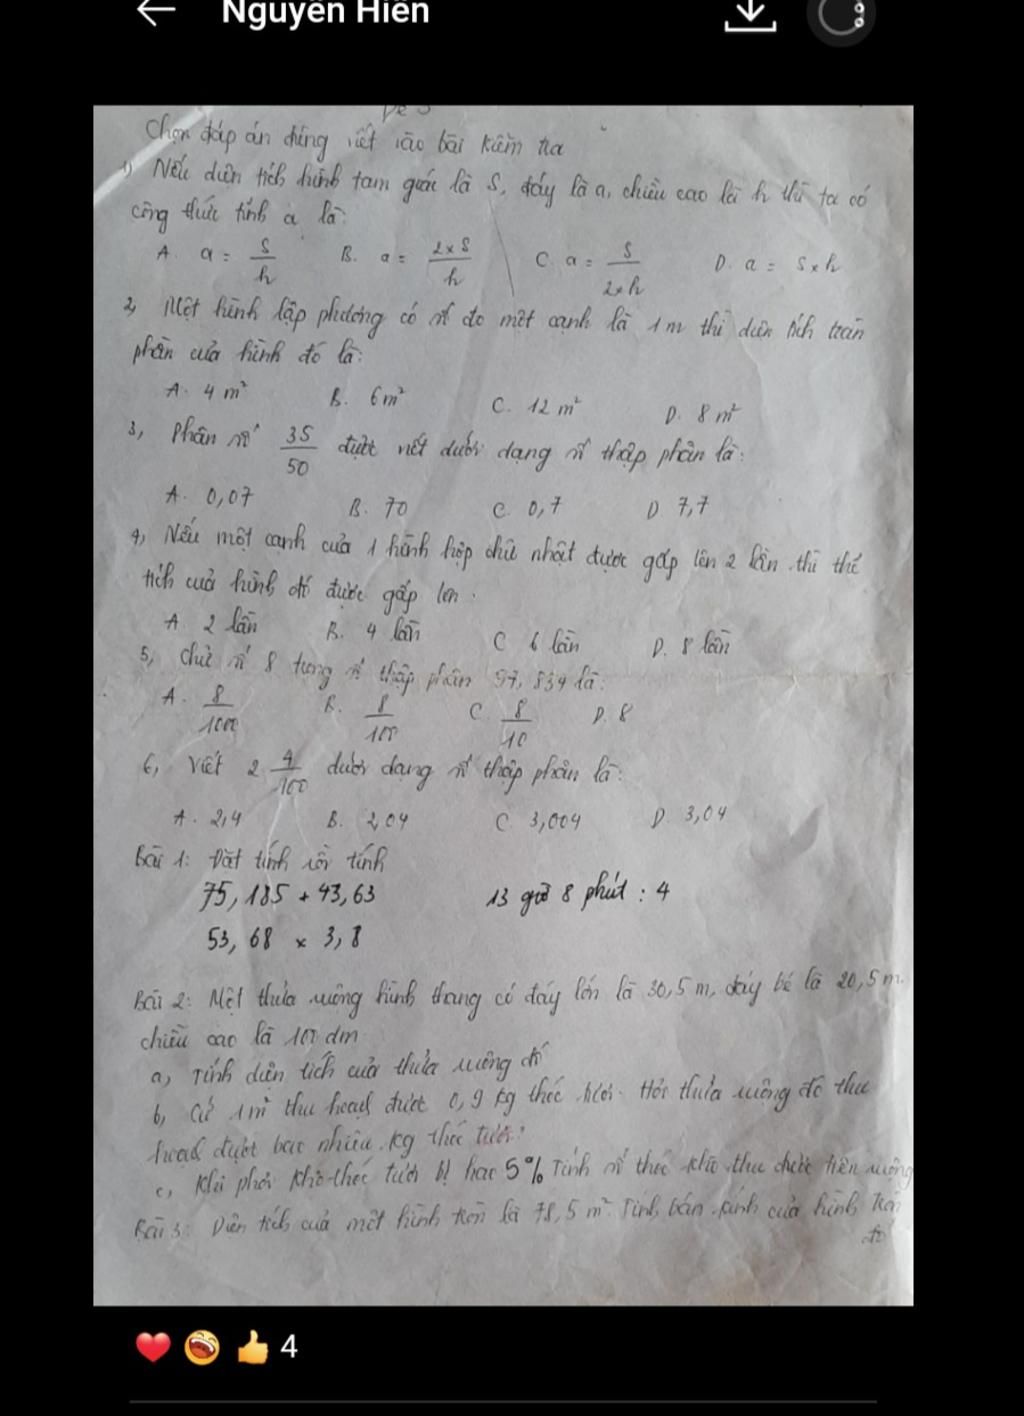 Nguyễn Hiền
Chọn đáp án đúng viết vào bài kiểm tra
1) Nếu diện tích hình tam giác là S, đáy là a, chiều cao là h thì ta có
công thức tính a là:
A. a = S/h B. a = 2×S/h C. a = S/2×h D. a = S×h
2, Một hình lập phương có số đo một cạnh là 1m thì diện tích toàn
phần của hình đó là:
A. 4 m² B. 6m² C. 12 m² D. 8 m²
3, Phân số 35/50 được viết dưới dạng số thập phân là:
A. 0,07 B. 70 C. 0,7 D 7,7
4, Nếu một cạnh của 1 hình hộp chữ nhật được gấp lên 2 lần thì thể
tích của hình đó được gấp lên:
A. 2 lần B. 4 lần C 6 lần D. 8 lần
5, chữ số 8 trong số thập phân 97,834 là:
A. 8/1000 B. 8/100 C. 8/10 D. 8
6, Viết 2 4/100 dưới dạng số thập phân là:
A. 2,4 B. 2,04 C. 3,004 D. 3,04
Bài 1: Đặt tính rồi tính
75,185 + 43,63 13 giờ 8 phút : 4
53,68 × 3,8
Bài 2: Một thửa ruộng hình thang có đáy lớn là 30,5 m, đáy bé là 20,5 m.
chiều cao là 100 dm
a, Tính diện tích của thửa ruộng đó
b, Cứ 1m² thu hoạch được 0,9 kg thóc tươi. Hỏi thửa ruộng đó thu
hoạch được bao nhiêu kg thóc tươi?
c, Khi phơi khô thóc tươi bị hao 5% Tính số thóc khô thu được trên ruộng
Bài 3: Diện tích của một hình tròn là 78,5 m². Tính bán kính của hình tròn
đó
4